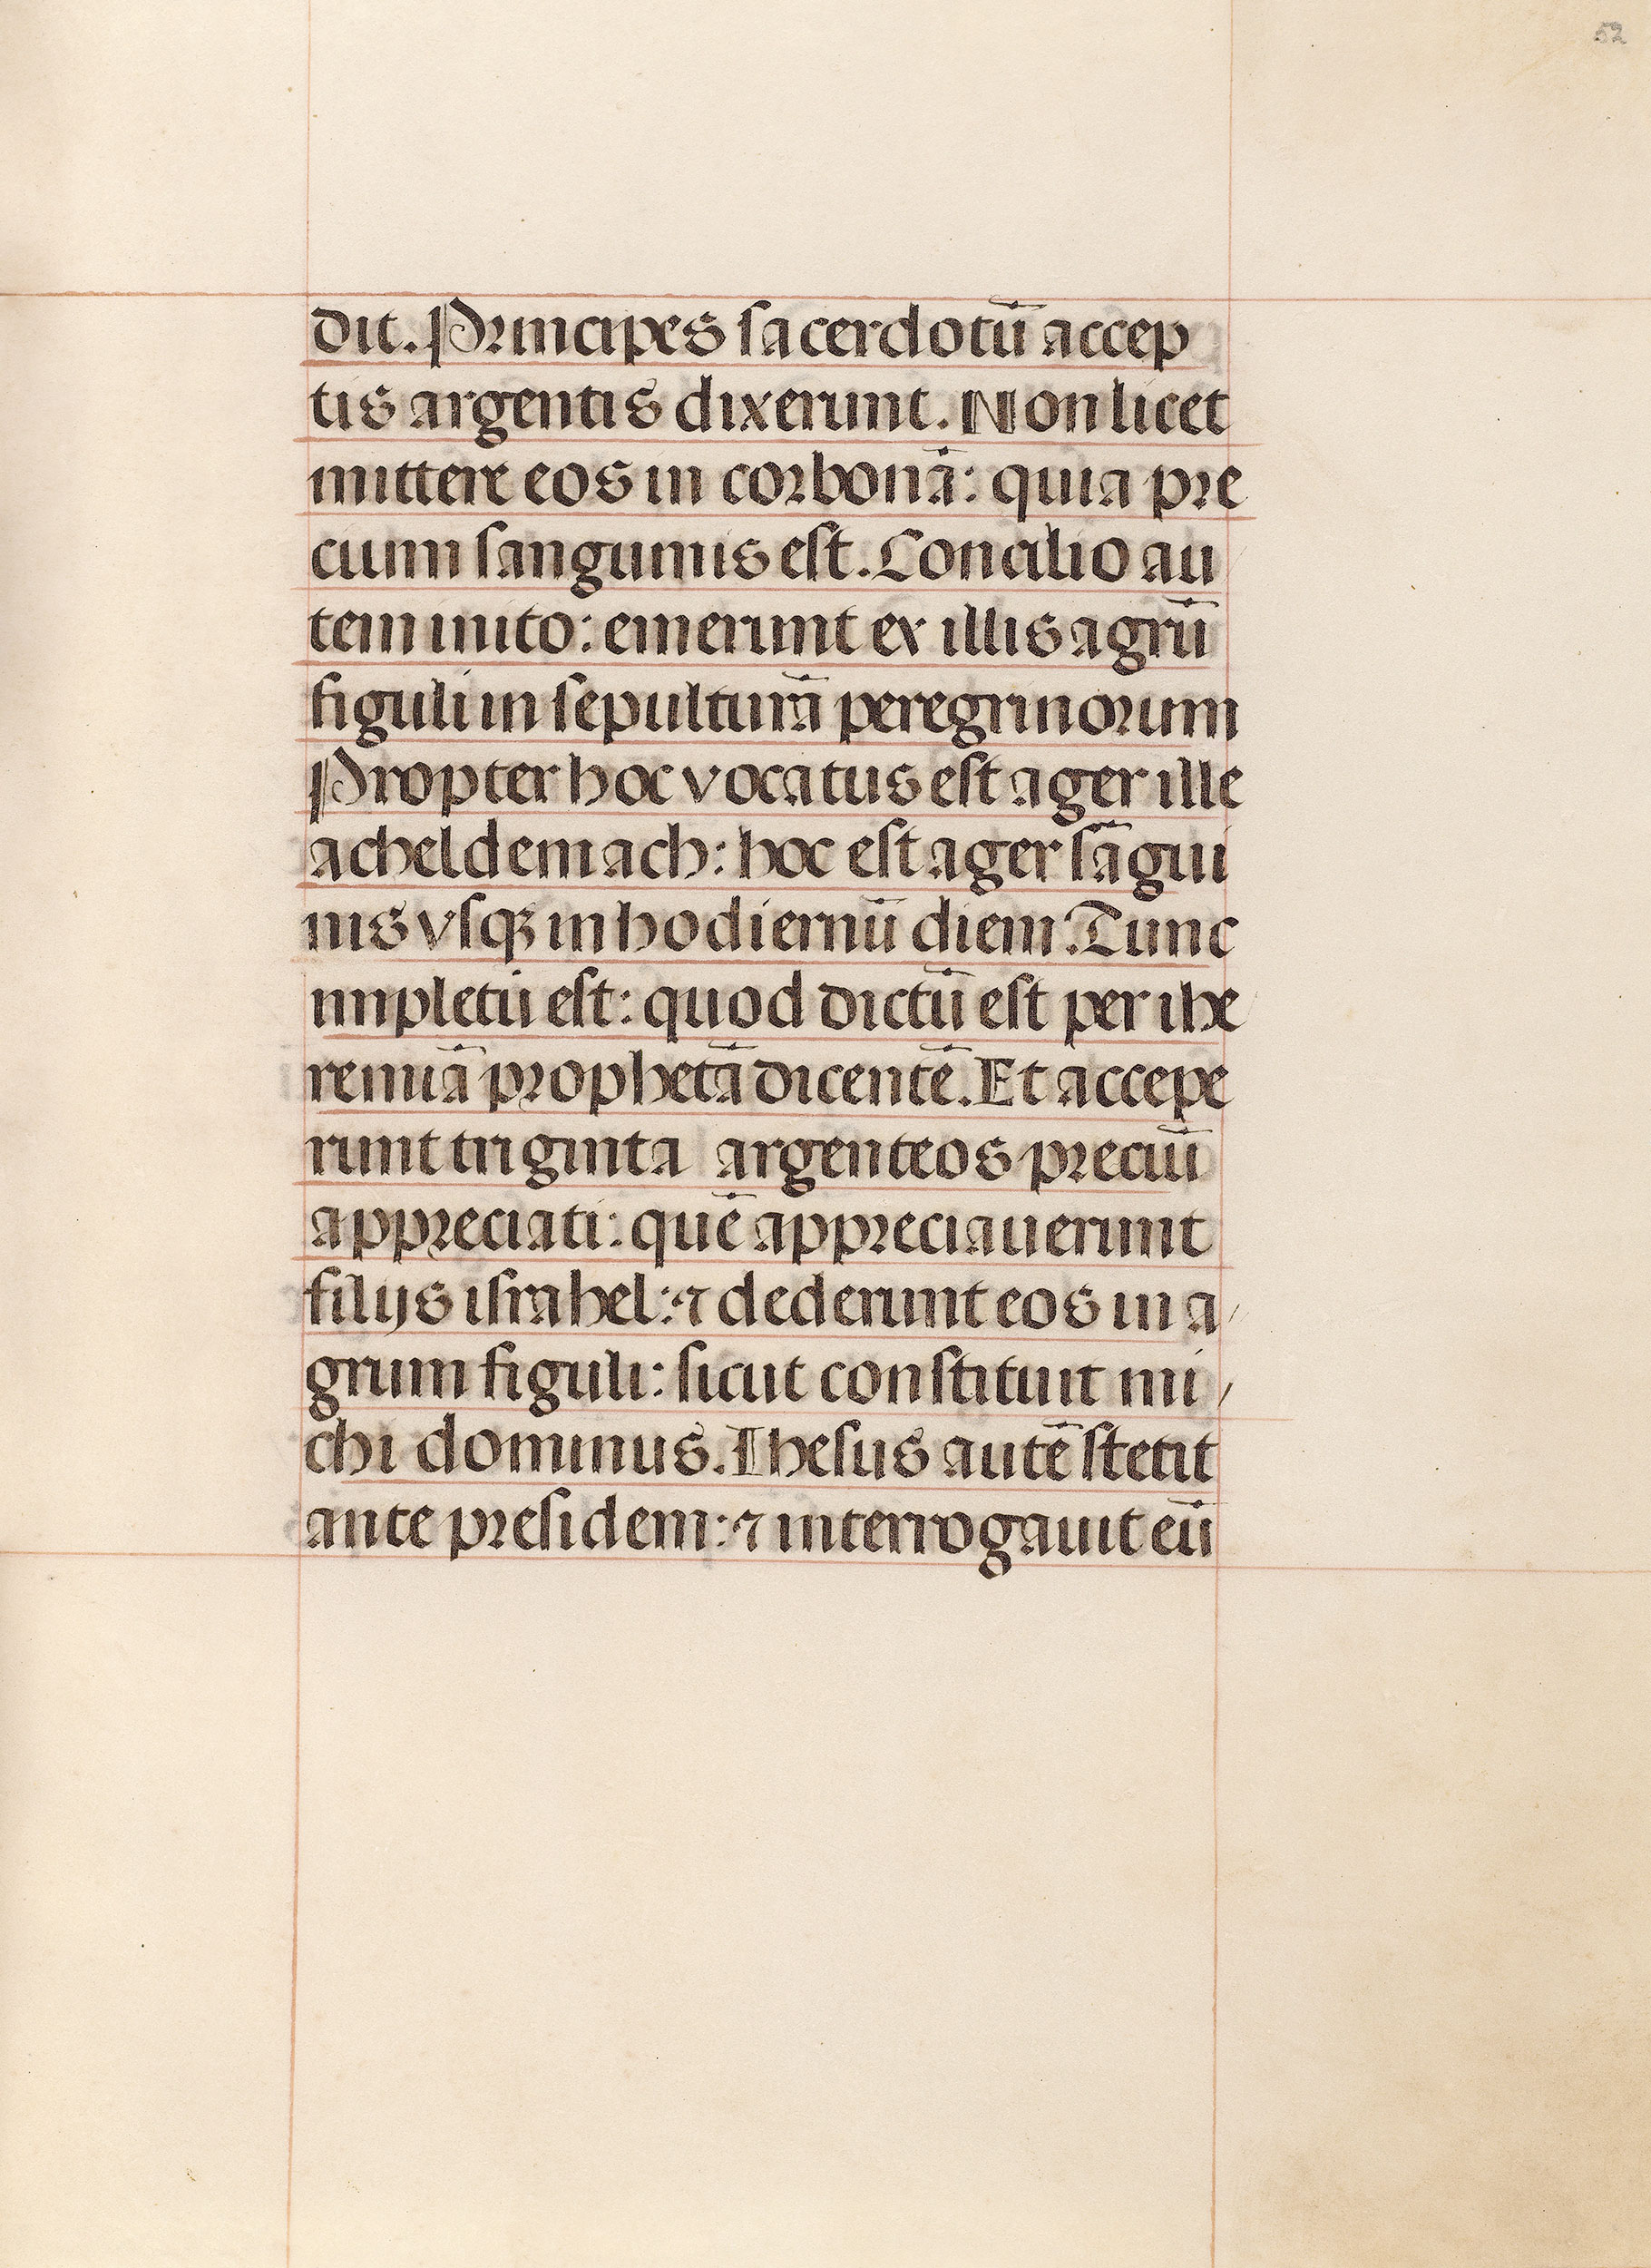 52
dit. Principes sacerdotū accep
tis argentis dixerunt. Non licet
mittere eos in corbonā: quia pre
cium sanguinis est. Concilio au
tem inito: emerunt ex illis agrū
figuli in sepulturā peregrinorum
Propter hoc vocatus est ager ille
acheldemach: hoc est ager sāgui
nis vsqꝫ in hodiernū diem. Tunc
impletū est: quod dictū est per ihe
remiā prophetā dicentē. Et accepe
runt triginta argenteos preciū
appreciati: quē appreciauerunt
filijs israhel: ⁊ dederunt eos in a/
grum figuli: sicut constituit mi/
chi dominus. Ihesus autē stetit
ante presidem: ⁊ interrogauit eū